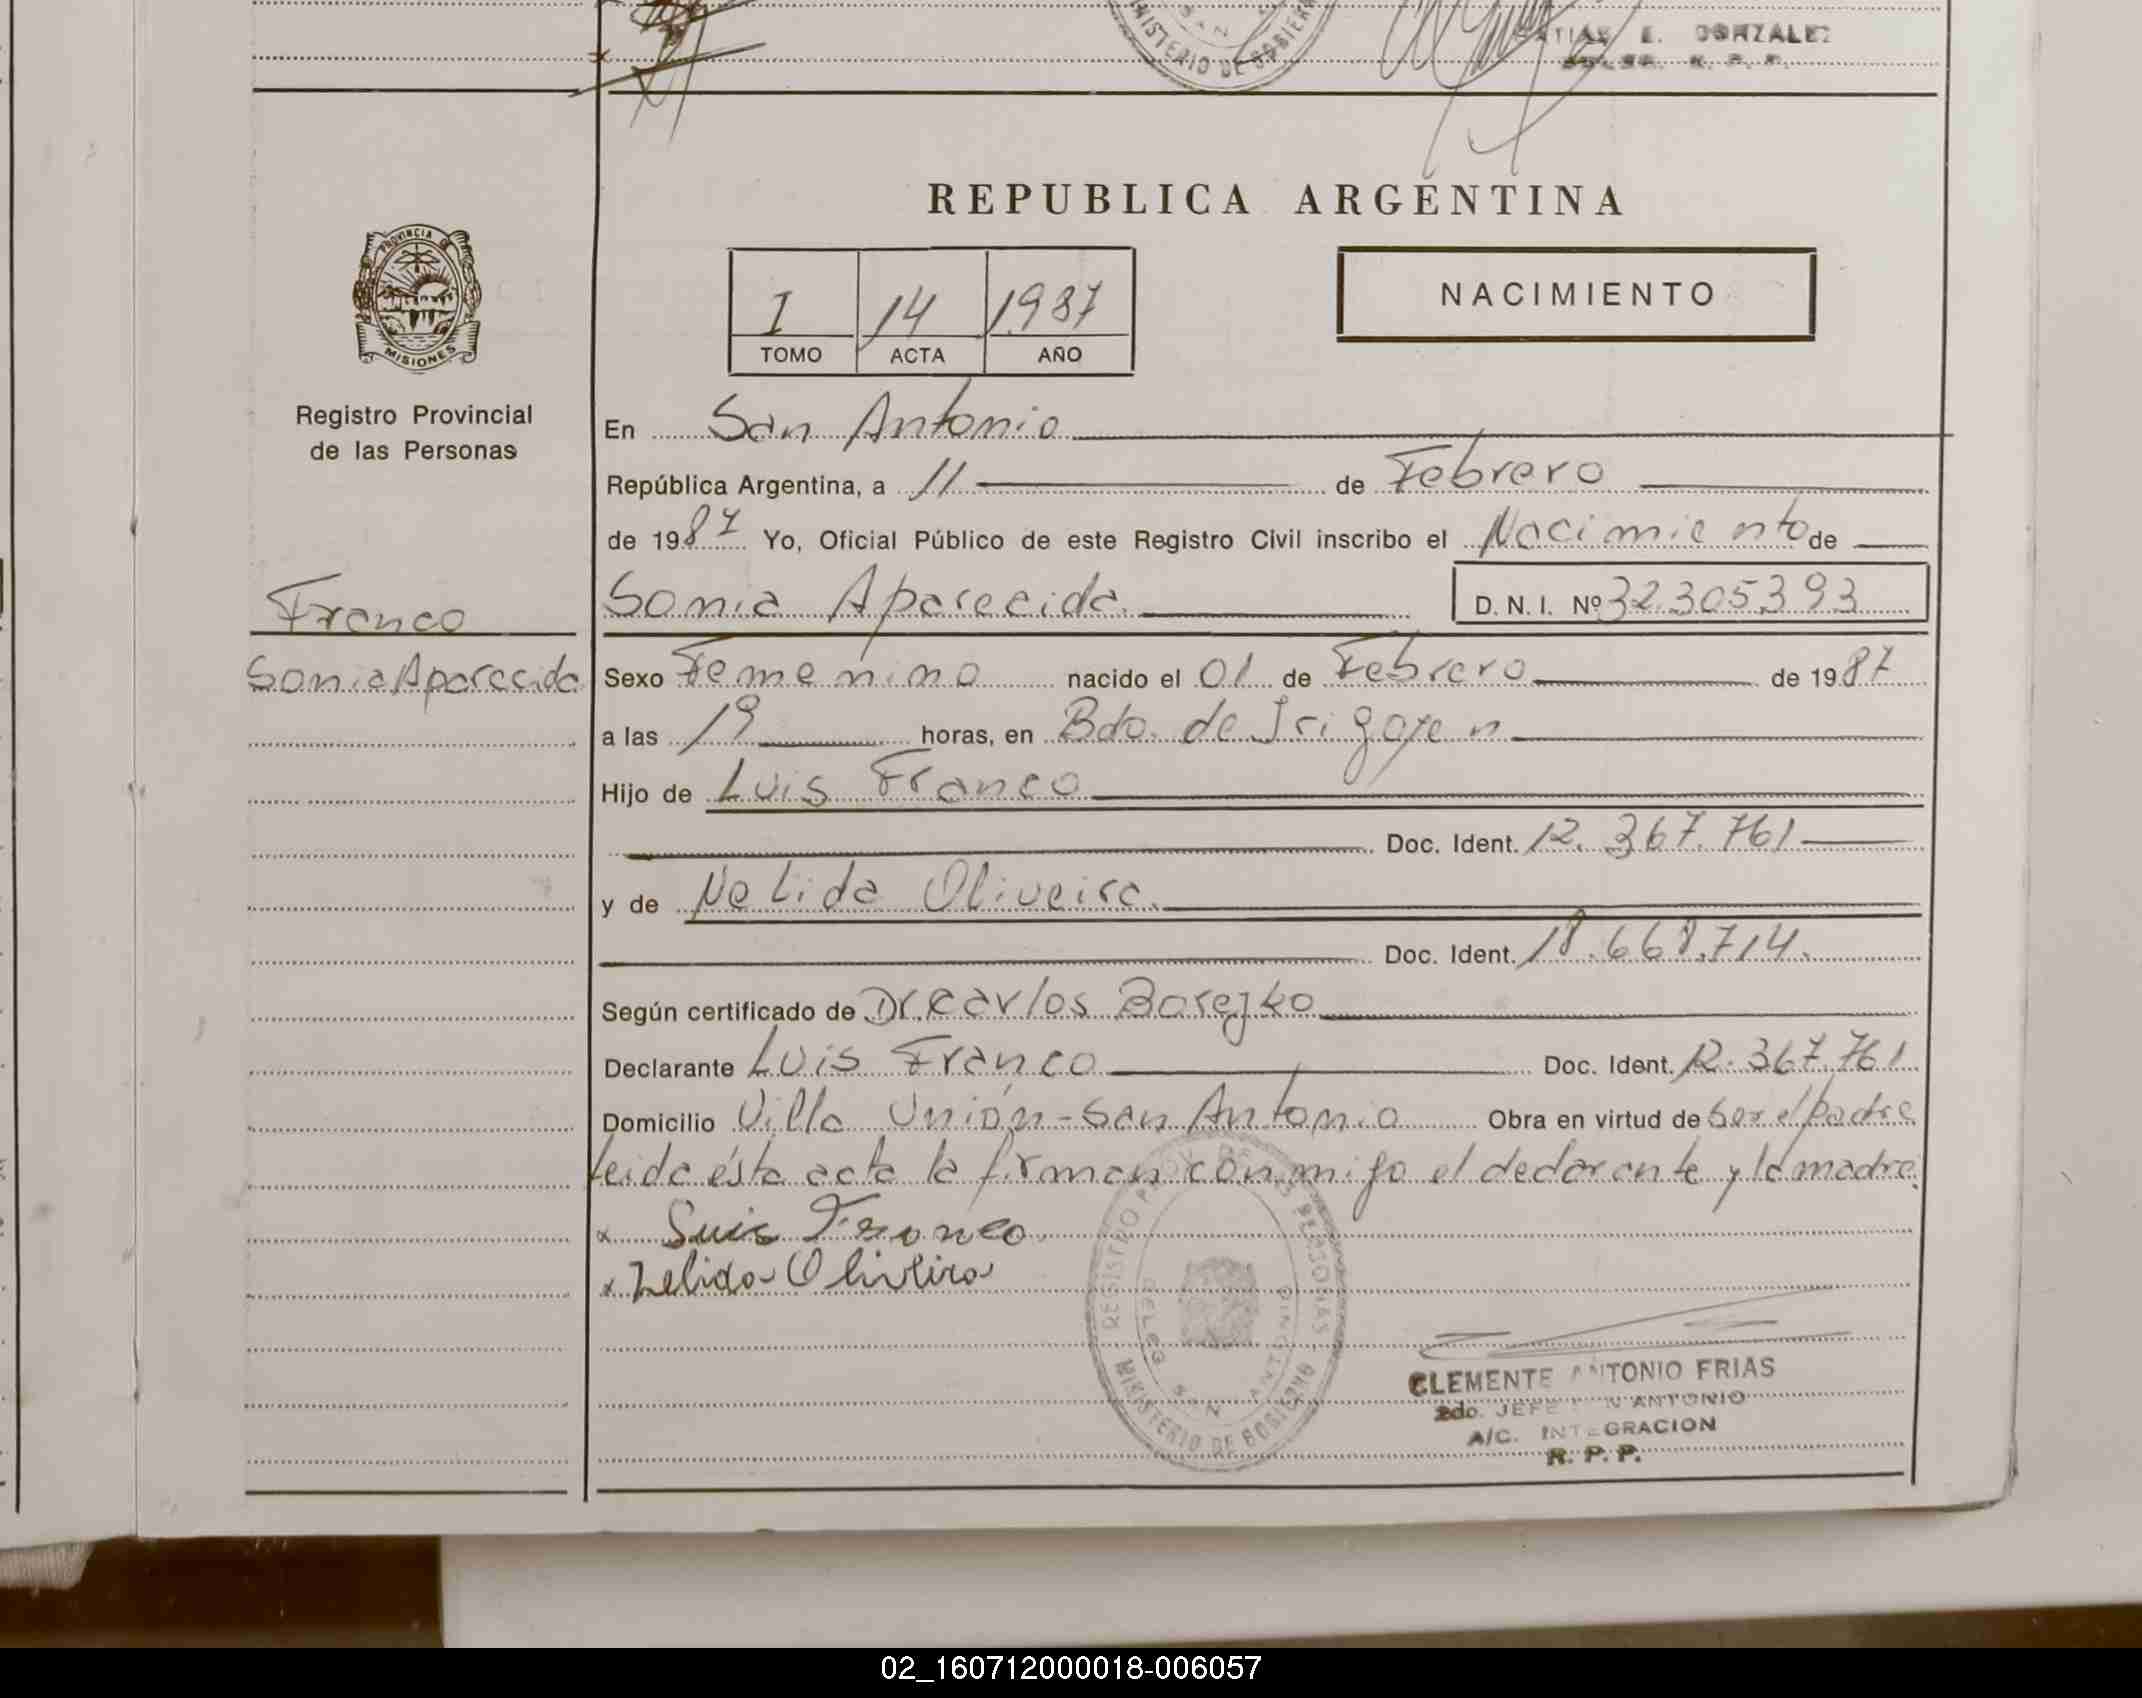 MINISTERIO DE GOBIERNO
E. GONZALEZ
REPUBLICA ARGENTINA
PROVINCIA DE
MISIONES
I 14 1987
TOMO ACTA AÑO
NACIMIENTO
Registro Provincial
de las Personas
En San Antonio
República Argentina, a 11 de Febrero
de 1987 Yo, Oficial Público de este Registro Civil inscribo el Nacimiento de
Franco
Sonia Aparecida D. N. I. Nº 32.305.393
Sonia Aparecida
Sexo Femenino nacido el 01 de Febrero de 1987
a las 19 horas, en Bdo. de Irigoyen
Hijo de Luis Franco
Doc. Ident. 12.367.761
y de Nelida Oliveira
Doc. Ident. 18.668.714.
Según certificado de Dr. Carlos Borejko
Declarante Luis Franco Doc. Ident. 12.367.761
Domicilio Villa Unión - San Antonio Obra en virtud de Ser el Padre
leida ésta acta la firman conmigo el declarante y la madre.
x Luis Franco
x Nelida Oliveira
REGISTRO PROV. DE LAS PERSONAS
DELEG. SAN ANTONIO
MINISTERIO DE GOBIERNO
CLEMENTE ANTONIO FRIAS
2do. JEFE SAN ANTONIO
A/C. INTEGRACION
R. P. P.
02_160712000018-006057